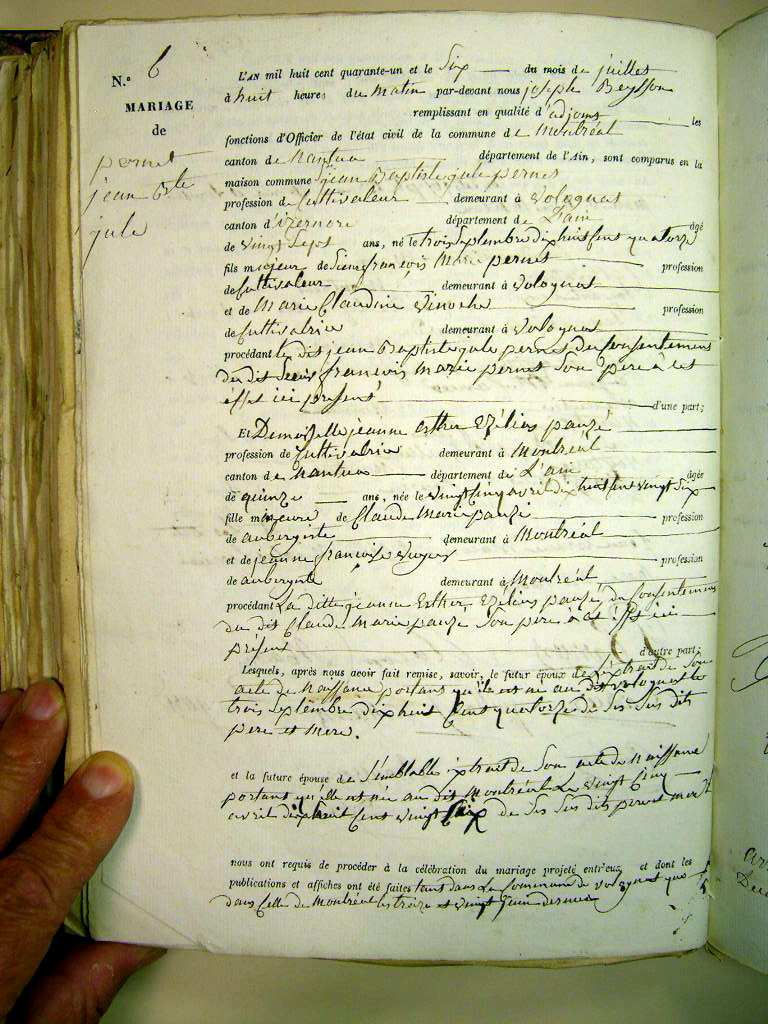 N.° 6
MARIAGE
de
pernet
jean Bte
jule
L'AN mil huit cent quarante-un et le Six du mois de juillet
à huit heures du matin par-devant nous joseph Reysson
remplissant en qualité d'adjoins les
fonctions d'Officier de l'état civil de la commune de Montréal
canton de Nantua département de l'Ain, sont comparus en la
maison commune jean Baptiste jule pernet
profession de Cultivateur demeurant à Volognat
canton d'izernore département de L'ain âgé
de vingt Sept ans, né le trois Septembre dix huit Cent quatorze
fils majeur de Sieur françois Marie pernet profession
de Cultivateur demeurant à Volognat
et de Marie Claudine profession
de Cultivatrice demeurant à Volognat
procédant le dit jean Baptiste jule pernet du Consentement
du dit Sieur francois Marie pernet Son père à cet
effet ici présent d'une part;
Et Demoiselle jeanne Esther Zélias panzé
profession de Cultivatrice demeurant à Montréal
canton de Nantua département de L'ain âgée
de quinze ans, née le vingt Cinq avril dix huit Cent vingt Six
fille mineure de Claude Marie panzé profession
de aubergiste demeurant à Montréal
et de jeanne françoise profession
de aubergiste demeurant à Montréal
procédant La ditte jeanne Esther Zélias panzé, du Consentement
du dit Claude Marie panze Son père à cet effet ici
présent d'autre part;
Lesquels, après nous avoir fait remise, savoir, le futur époux de L'extrait de Son
acte de Naissance portant qu'il est né au dit Volognat le
trois Septembre dix huit Cent quatorze de Ses Sus dits
pere et mere.
et la future épouse de Semblable extrait de Son acte de Naissance
portant qu'elle est née au dit Montréal Le vingt Cinq
avril dix huit Cent vingt Six de Ses Sus dits pere et mere
nous ont requis de procéder à la célébration du mariage projeté entr'eux et dont les
publications et affiches ont été faites tant dans La Commune de Volognat que
dans Celle de Montréal les treize et vingt juin dernier